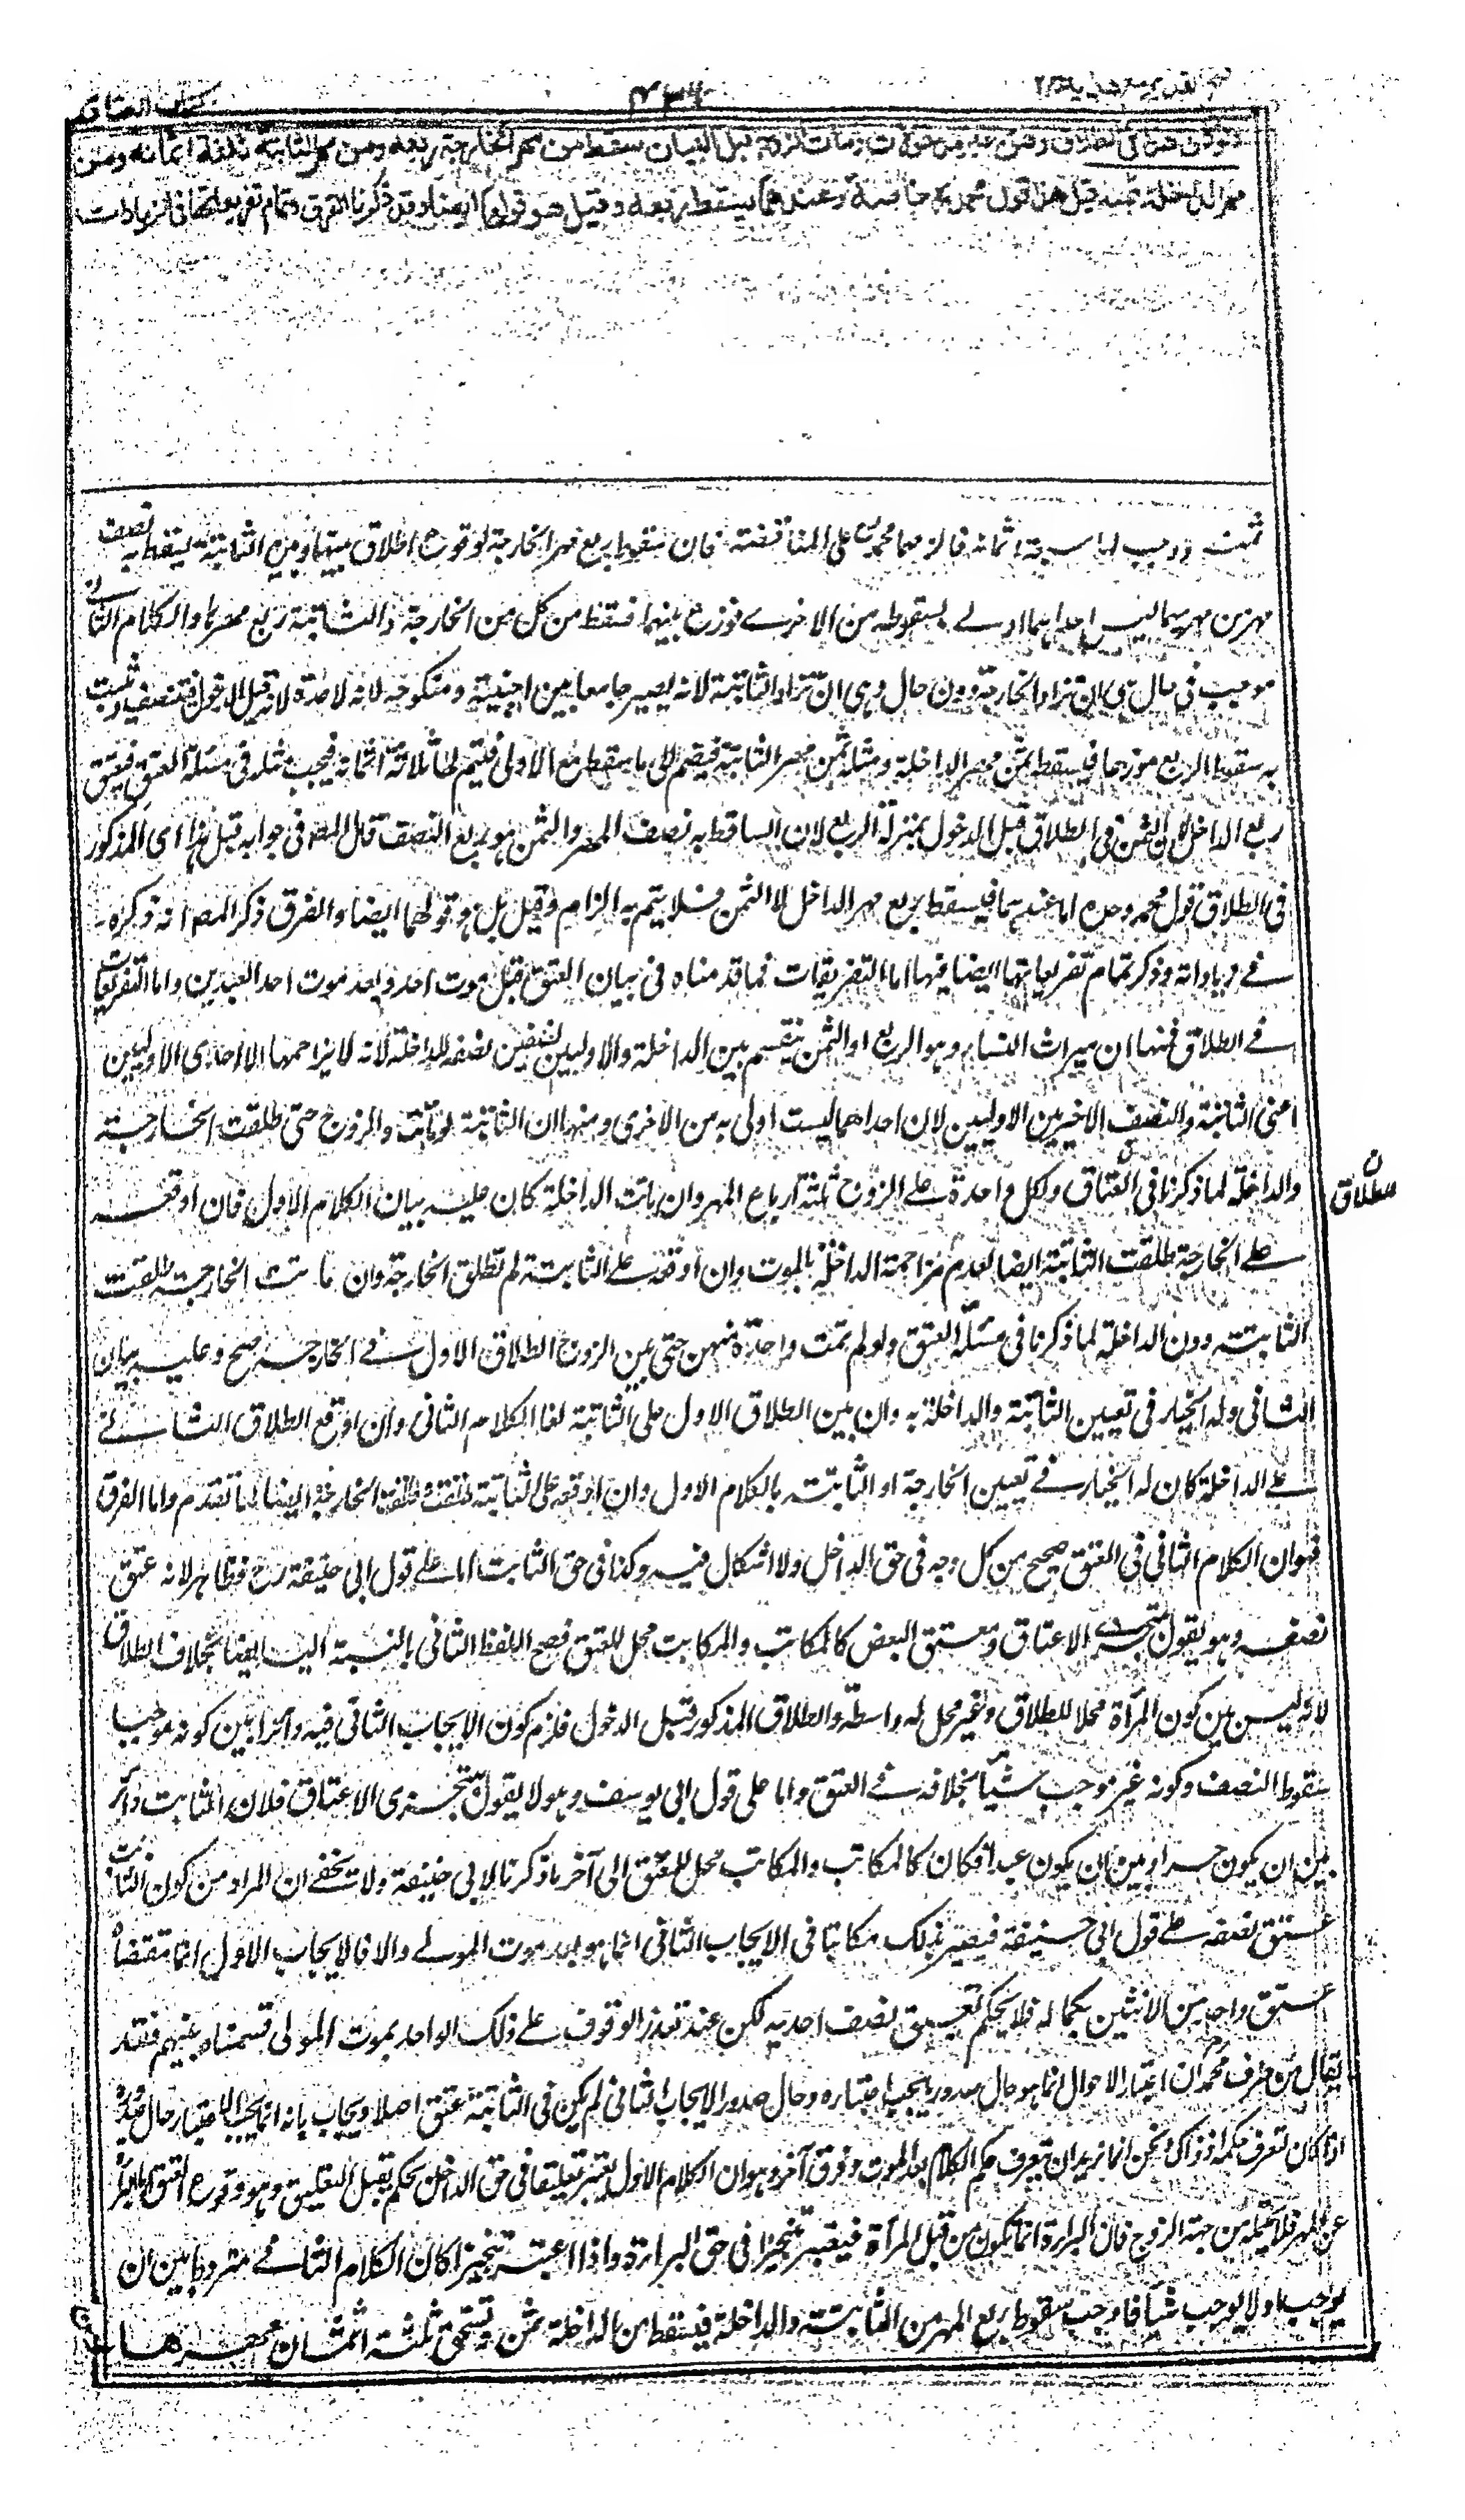 كتاب العتاق
ولو كان هذا في الطلاق وهن غير مدخولات ومات الزوج قبل البيان سقط من مهر الخارجة ربعه ومن مهر الثابتة ثلثة اثمانه ومن
مهر الداخلة ثمنه قيل هذا قول محمد رح خاصة وعندهما يسقط ربعه وقيل هو قولهما ايضا وقد ذكرنا الفرق وتمام تفريعاتها في الزيادات
ثمنه ووجب لها اثمانه فالزمهما محمد رح على المناقضة فان سقوط ربع مهر الخارجة لوقوع الطلاق بينها وبين الثابتة يسقط به نصف
مهر بين مهريهما ليس احداهما اولے بسقوطه من الاخرے فوزع بينهما فسقط من كل من الخارجة والثابتة ربع مهرها والكلام الثانے
موجب في حال هى ان تراد الخارجة دون حال وهى ان تراد الثابتة لانه يصير جامعا بين اجنبية ومنكوحة لانه لا عدة لانه قبل الدخول فتنصف فثبت
به سقوط الربع موزعا فيسقط ثمن مهر الداخلة ومثله ثمن مهر الثابتة فيضم الى ما سقط مع الاولى فتيم لها ثلاثة اثمانه فيجب مثله في مسئلة العتق فيعتق
ربع الداخل لان الثمن فى الطلاق قبل الدخول بمنزلة الربع لان الساقط به نصف المهر والثمن هو ربع النصف قال المصا فى جوابه قيل هذا اى المذكور
فى الطلاق قول محمد وحده اما عندهما فيسقط ربع مهر الداخل لا الثمن فلا يتم به الزام وقيل بل هو قولهما ايضا والفرق ذكر المصا انه ذكره
فے زياداته وذكر تمام تفريعاتها ايضا فيها اما التفريقات فما قدمناه فى بيان العتق قبل موت احد وبعد موت احد العبدين واما التفريعات
فے الطلاق فمنها ان ميراث النساء وهو الربع او الثمن ينقسم بين الداخلة والاوليين نصفين نصفه للداخلة لانه لا يزاحمها الا احدى الاوليين
اعنى الثابتة والنصف الاخر بين الاوليين لان احداهما ليست اولى به من الاخرى ومنها ان الثابتة لو ماتت والزوج حى طلقت الخارجة
والداخلة لما ذكرنا فى العتاق ولكل واحدة على الزوج ثلثة ارباع المهر وان ماتت الداخلة كان عليه بيان الكلام الاول فان اوقعه
علے الخارجة طلقت الثابتة ايضا لعدم مزاحمة الداخلة بالموت وان اوقعه علے الثابتة لم تطلق الخارجة وان ماتت الخارجة طلقت
الثابتة دون الداخلة لما ذكرنا فى مسئلة العتق ولو لم تمت واحدة منهن حتى بين الزوج الطلاق الاول فے الخارجة صح وعليه بيان
الثانى وله الخيار فى تعيين الثابتة والداخلة به وان بين الطلاق الاول على الثابتة لغا الكلام الثانى وان اوقع الطلاق الثانے
علے الداخلة كان له الخيار فے تعيين الخارجة او الثابتة بالكلام الاول وان اوقعه على الثابتة طلقت وطلقت الخارجة ايضا لما تقدم واما الفرق
فهو ان الكلام الثانى فى العتق صحيح من كل وجه فى حق الداخل ولا اشكال فيه وكذا فى حق الثابت اما علے قول ابى حنيفة رح فظاهر لانه عتق
نصفه وهو يقول بتجزے الاعتاق ومعتق البعض كالمكاتب والمكاتب محل للعتق فصح اللفظ الثانى بالنسبة اليه ايضا بخلاف الطلاق
لانه ليس بين كون المرأة محلا للطلاق وغير محل له واسطة والطلاق المذكور قبل الدخول فلزم كون الايجاب الثانى فيه دائرا بين كونه موجبا
سقوط النصف وكونه غير موجب شيأ بخلافه فے العتق واما على قول ابى يوسف وهو لا يقول بتجزى الاعتاق فلان الثابت دائر
بين ان يكون حرا وبين ان يكون عبدا فكان كالمكاتب والمكاتب محل للعتق الى آخر ما ذكرنا لابى حنيفة ولا يخفے ان المراد من كون الثابت
عتق نصفه علے قول ابى حنيفة فيصير بذلك مكاتبا فى الايجاب الثانى انما هو بعد موت المولے والا فالايجاب الاول انما مقتضاه
عتق واحد من الاثنين بكماله فلا يحكم بعتق نصف احد به لكن عند تعذر الوقوف علے ذلك الواحد بموت المولى قسمناه بينهم فقد
يقال من طرف محمد ان اعتبار الاحوال انما هو حال صدور ما يجب اعتباره وحال صدور الايجاب الثانى لم يكن فى الثابتة عتق اصلا ويجاب بانه انما يجب الاعتبار حال صدوره
اذا كان لتعرف حكمه اذ ذاك ونحن انما نريد ان نتعرف حكم الكلام بعد الموت وفرق آخر وهو ان الكلام الاول يعتبر تعليقا فى حق الداخل بحكم يقبل التعليق وهو وقوع العتق
عن المهر فلا يقبله من جهة الزوج فان البراءة انما يكون من قبل المرأة فيعتبر تنجيزا فى حق البراءة واذا اعتبر تنجيزا كان الكلام الثانے مترددا بين ان
يوجب اولا يوجب شيأ فاوجب سقوط ربع المهر من الثابتة والداخلة فيسقط من الداخلة ثمن وتستحق ثلثة اثمان مهرها